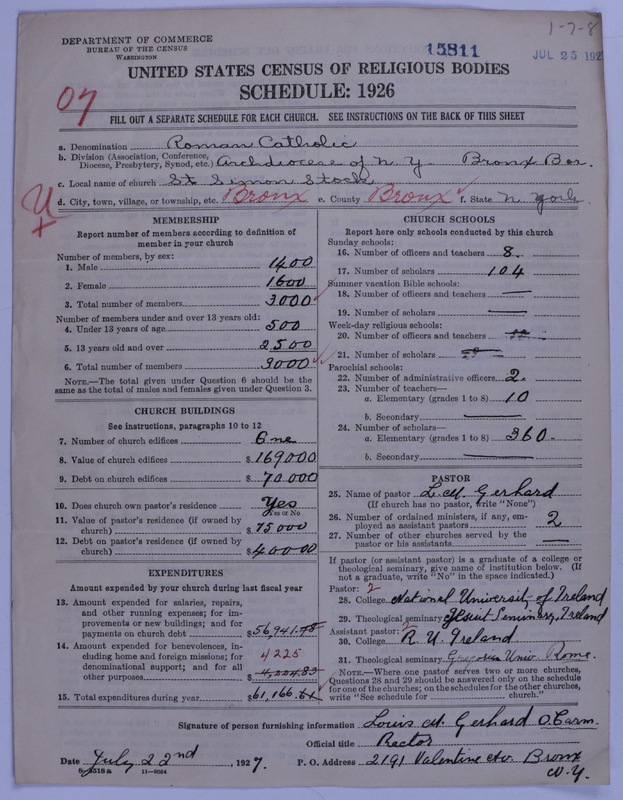 1-7-8
DEPARTMENT OF COMMERCE
BUREAU OF THE CENSUS
WASHINGTON
15811
JUL 25 192
UNITED STATES CENSUS OF RELIGIOUS BODIES
SCHEDULE: 1926
07
FILL OUT A SEPARATE SCHEDULE FOR EACH CHURCH. SEE INSTRUCTIONS ON THE BACK OF THIS SHEET
a. Denomination Roman Catholic
b. Division (Association, Conference, Diocese, Presbytery, Synod, etc.) Archdiocese of N. Y. Bronx Bor.
c. Local name of church St Simon Stock
d. City, town, village, or township, etc. Bronx e. County Bronx f. State N. York
MEMBERSHIP
Report number of members according to definition of
member in your church
Number of members, by sex:
1. Male 1400
2. Female 1600
3. Total number of members 3000
Number of members under and over 13 years old:
4. Under 13 years of age 500
5. 13 years old and over 2500
6. Total number of members 3000
NOTE.—The total given under Question 6 should be
same as the total of males and females given under Question 3.
CHURCH BUILDINGS
See instructions, paragraphs 10 to 12
7. Number of church edifices One
8. Value of church edifices $169000
9. Debt on church edifices $70.000
10. Does church own pastor's residence Yes
Yes or No
11. Value of pastor's residence (if owned by
church) $75000
12. Debt on pastor's residence (if owned by
church) $40000
EXPENDITURES
Amount expended by your church during last fiscal year
13. Amount expended for salaries, repairs,
and other running expense; for im-
provements or new buildings; and for
payments on church debt $56,941.
14. Amount expended for benevolences, in-
cluding home and foreign missions; for
denominational support; and for all
other purposes $4,224.83
4225
15. Total expenditures during year $61,166.
CHURCH SCHOOLS
Report here only schools conducted by this church
Sunday schools:
16. Number of officers and teachers 8.
17. Number of scholars 104
Summer vacation Bible schools:
18. Number of officers and teachers —
19. Number of scholars —
Week-day religious schools:
20. Number of officers and teachers
21. Number of scholars
Parochial schools:
22. Number of administrative officers 2.
23. Number of teachers—
a. Elementary (grades 1 to 8) 10
b. Secondary —
24. Number of scholars—
a. Elementary (grades 1 to 8) 360.
b. Secondary —
PASTOR
25. Name of pastor L. M. Gerhard
(If church has no pastor, write "None")
26. Number of ordained ministers, if any, em-
ployed as assistant pastors 2
27. Number of other churches served by the
pastor or his assistants —
If pastor (or assistant pastor) is a graduate of a college or
theological seminary, give name of institution below. (If
not a graduate, write "No" in the space indicated.)
Pastor: 2
28. College National University of Ireland
29. Theological seminary Jesuit Seminary, Ireland
Assistant pastor: 2
30. College R. U. Ireland
31. Theological seminary Gregorian Univ. Rome.
NOTE.—Where one pastor serves two or more churches,
Questions 28 and 29 should be answered only on the schedule
for one of the churches; on the schedules for the other churches,
write "See schedule for church."
Signature of person furnishing information Louis M. Gerhard O.Carm.
Official title Rector
Date July 22nd, 1927. P. O. Address 2191 Valentine Av. Bronx
N. Y.
8-5518a 11-9054